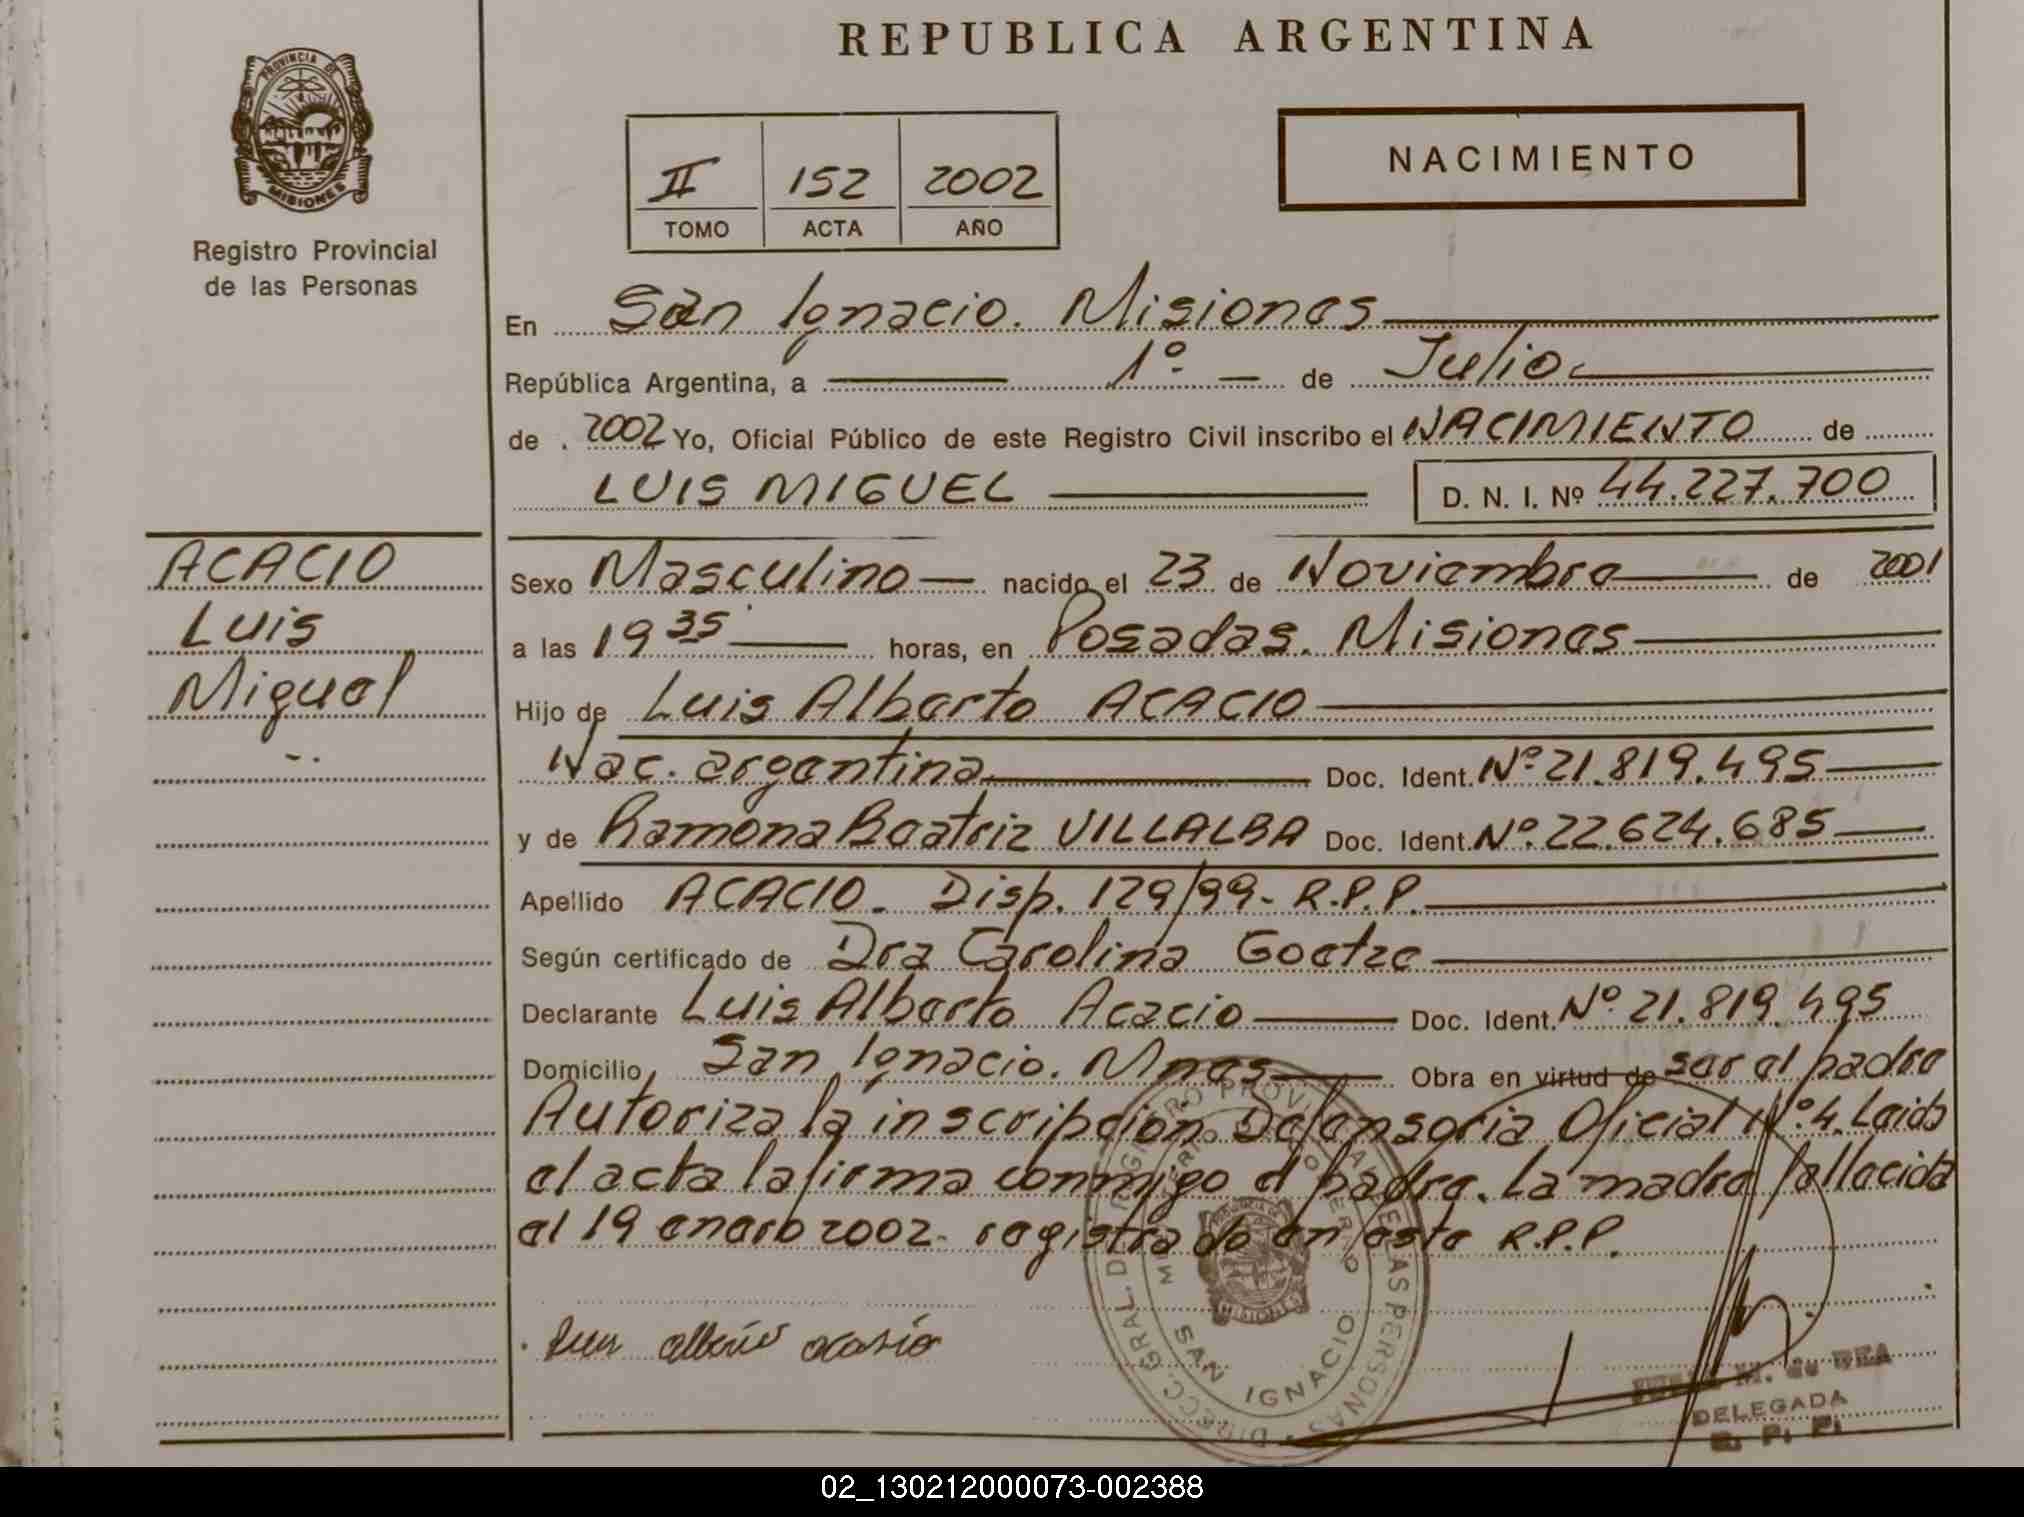 REPUBLICA ARGENTINA
PROVINCIA DE
MISIONES
Registro Provincial
de las Personas
II 152 2002
TOMO ACTA AÑO
NACIMIENTO
En San Ignacio. Misiones
República Argentina, a 1º de Julio
de 2002 Yo, Oficial Público de este Registro Civil inscribo el NACIMIENTO de
LUIS MIGUEL D. N. I. Nº 44.227.700
ACACIO
Luis
Miguel
Sexo Masculino nacido el 23 de Noviembre de 2001
a las 19 35 horas, en Posadas. Misiones
Hijo de Luis Alberto ACACIO
Nac. argentina Doc. Ident. Nº 21.819.495
y de Ramona Beatriz VILLALBA Doc. Ident. Nº 22.624.685
Apellido ACACIO. Disp. 129/99- R.P.P.
Según certificado de Dra Carolina Goetze
Declarante Luis Alberto Acacio Doc. Ident. Nº 21.819.495
Domicilio San Ignacio. Mnes Obra en virtud de ser el padre
Autoriza la inscripcion Defensoria Oficial Nº 4. Leida
el acta la firma conmigo el padre. La madre fallecida
el 19 enero 2002. registrado en este R.P.P.
Luis alberto acasio
DIRECC. GRAL. DE REGISTRO PROVINCIAL DE LAS PERSONAS
MINISTERIO DE GOBIERNO
PROVINCIA DE
MISIONES
SAN IGNACIO
M. de REA
DELEGADA
R. P. P.
02_130212000073-002388